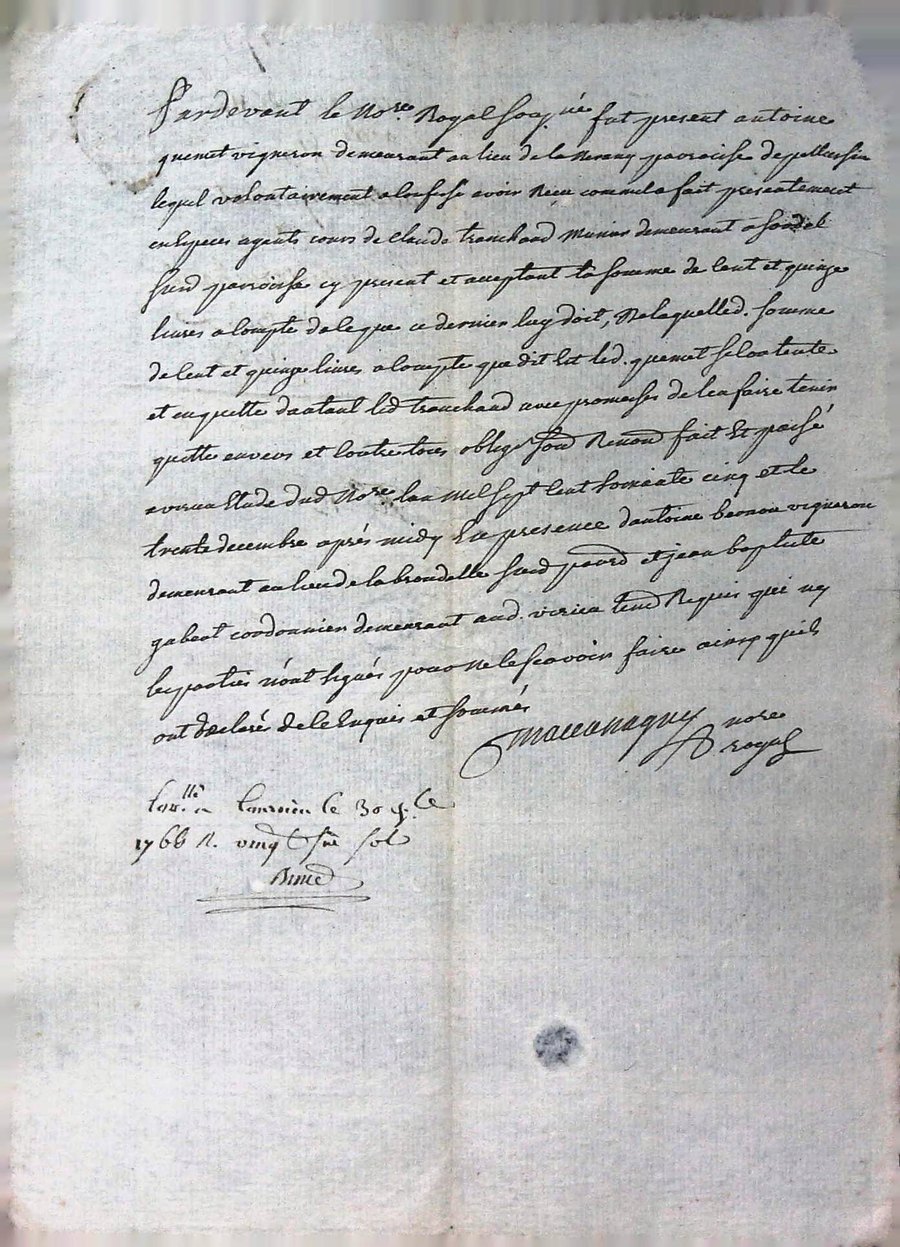 Pardevant le No.re Royal Sousigné fut present antoine
quemet vigneron demeurant au lieu de la parroisse de pellussin
lequel volontairement a confessé avoir Receu comm'il a fait presentement
en especes ayants cours de Claude tranchand demeurant a
Susd parroisse cy present et acceptant la somme de Cent et quinze
livres a Compte de ce que ce dernier luy doit, de laquelled. somme
de Cent et quinze livres a Compte que dit Est led. quemet se Contente
et en quitte d'autant led tranchand avec promesses de l'en faire tenir
quitte envers et Contre tous oblig soud Renond fait Et passé
a virieu Etude dud No.re l'an Mil sept Cent soixante cinq et le
trente decembre après midy En presence d'antoine vigneron
demeurant au lieu de la Susd parr.d et jean baptiste
gabert cordonnier demeurant aud. virieu tem.d Requis qui ny
les parties n'ont signés pour ne le sçavoir faire ainsy qu'ils
ont declarés de ce Enquis et sommés
nore
royal
le 30
sols